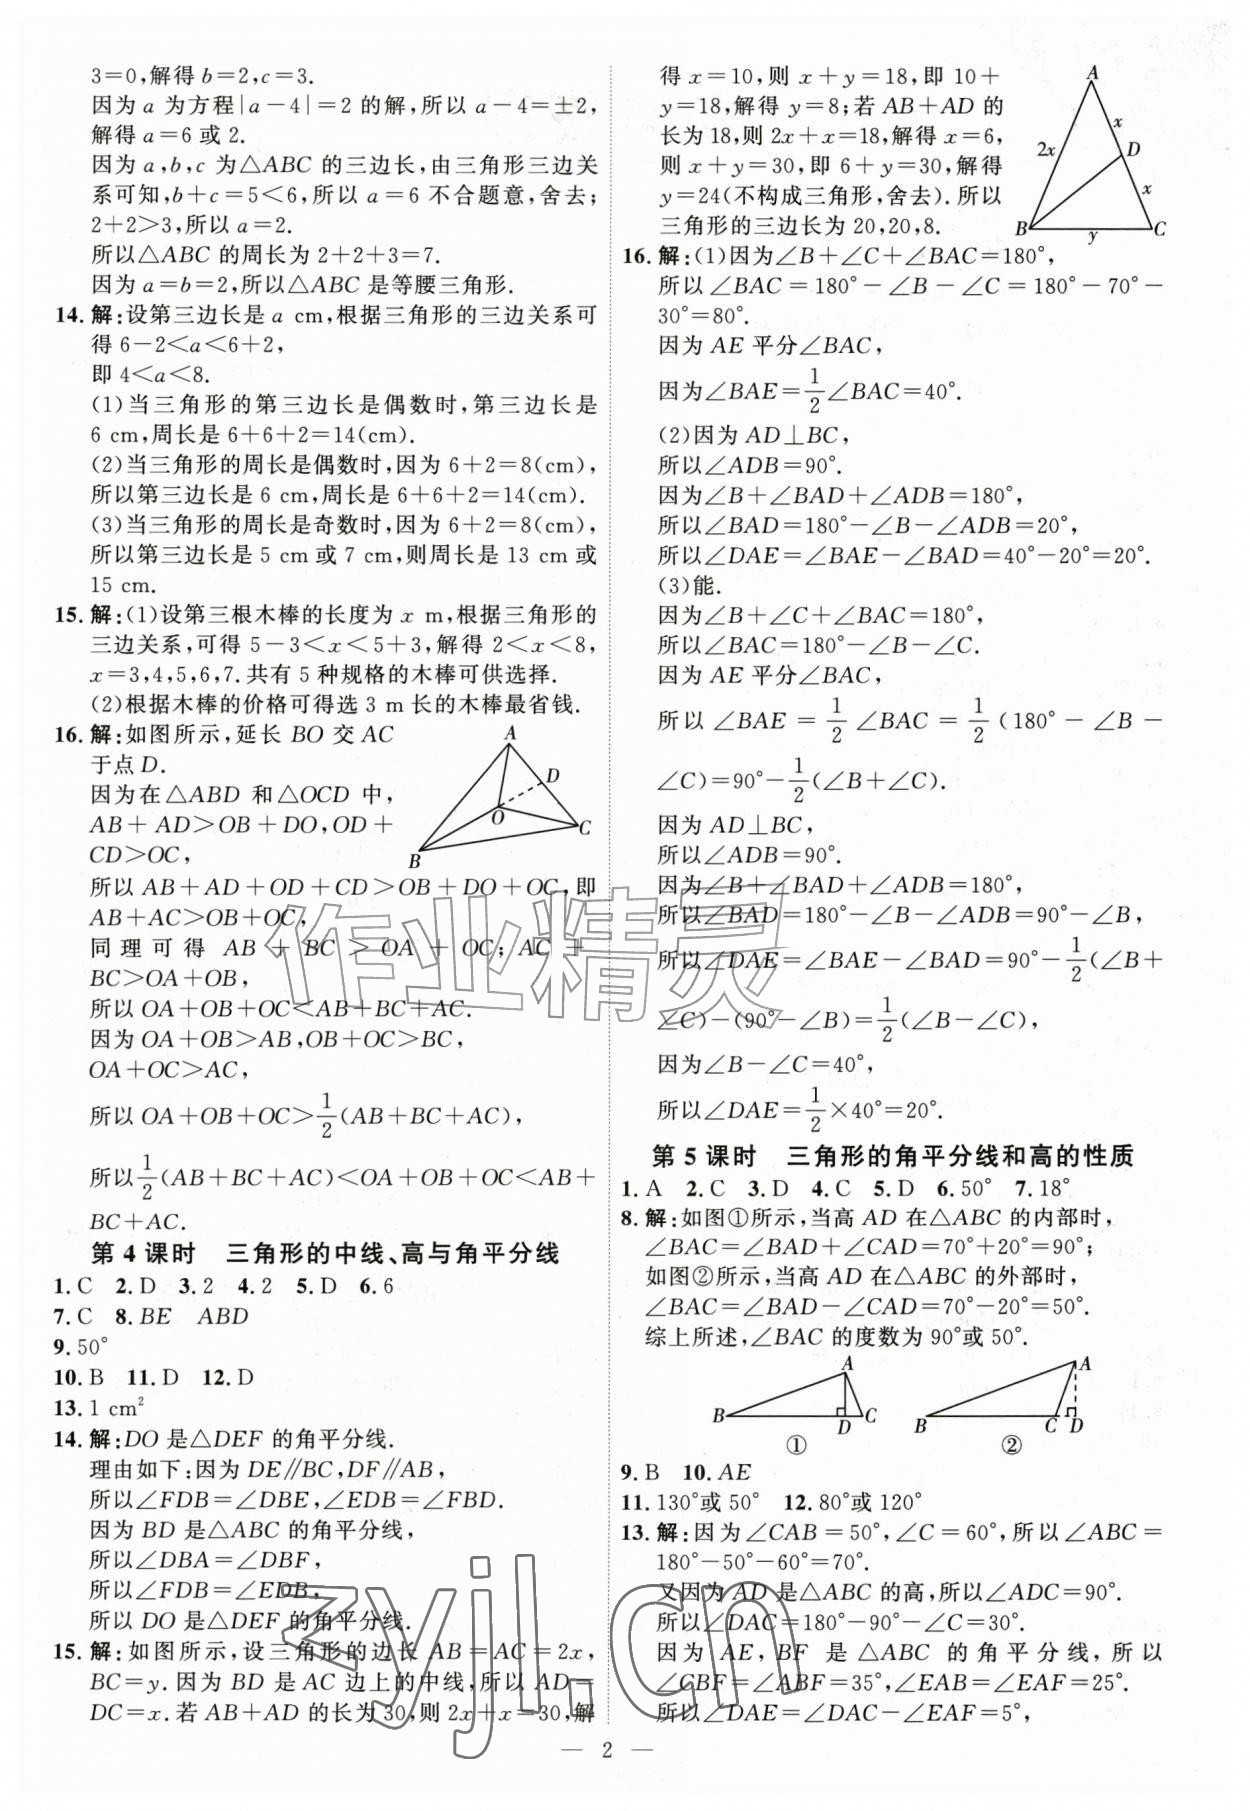 3=0,解得 b=2,c=3.
因为 a 为方程|a-4|=2 的解,所以 a-4=±2,
解得 a=6 或 2.
因为 a,b,c 为△ABC 的三边长,由三角形三边关
系可知,b+c=5<6,所以 a=6 不合题意,舍去;
2+2>3,所以 a=2.
所以△ABC 的周长为 2+2+3=7.
因为 a=b=2,所以△ABC 是等腰三角形.
14.解:设第三边长是 a cm,根据三角形的三边关系可
得 6-2<a<6+2,
即 4<a<8.
(1)当三角形的第三边长是偶数时,第三边长是
6 cm,周长是 6+6+2=14(cm).
(2)当三角形的周长是偶数时,因为 6+2=8(cm),
所以第三边长是 6 cm,周长是 6+6+2=14(cm).
(3)当三角形的周长是奇数时,因为 6+2=8(cm),
所以第三边长是 5 cm 或 7 cm,则周长是 13 cm 或
15 cm.
15.解:(1)设第三根木棒的长度为 x m,根据三角形的
三边关系,可得 5-3<x<5+3,解得 2<x<8,
x=3,4,5,6,7.共有 5 种规格的木棒可供选择.
(2)根据木棒的价格可得选 3 m 长的木棒最省钱.
16.解:如图所示,延长 BO 交 AC
于点 D.
因为在△ABD 和△OCD 中,
AB+AD>OB+DO,OD+
CD>OC,
A
D
O
C
B
所以 AB+AD+OD+CD>OB+DO+OC,即
AB+AC>OB+OC,
同理可得 AB+BC>OA+OC;AC+
BC>OA+OB,
所以 OA+OB+OC<AB+BC+AC.
因为 OA+OB>AB,OB+OC>BC,
OA+OC>AC,
所以 OA+OB+OC>1/2(AB+BC+AC),
所以1/2(AB+BC+AC)<OA+OB+OC<AB+
BC+AC.
第 4 课时 三角形的中线、高与角平分线
1.C 2.D 3.2 4.2 5.D 6.6
7.C 8.BE ABD
9.50°
10.B 11.D 12.D
13.1 cm²
14.解:DO 是△DEF 的角平分线.
理由如下:因为 DE∥BC,DF∥AB,
所以∠FDB=∠DBE,∠EDB=∠FBD.
因为 BD 是△ABC 的角平分线,
所以∠DBA=∠DBF,
所以∠FDB=∠EDB,
所以 DO 是△DEF 的角平分线.
15.解:如图所示,设三角形的边长 AB=AC=2x,
BC=y.因为 BD 是 AC 边上的中线,所以 AD=
DC=x.若 AB+AD 的长为 30,则 2x+x=30,解
得 x=10,则 x+y=18,即 10+
y=18,解得 y=8;若 AB+AD 的
长为 18,则 2x+x=18,解得 x=6,
则 x+y=30,即 6+y=30,解得
y=24(不构成三角形,舍去).所以
三角形的三边长为 20,20,8.
A
x
2x
D
x
B
y
C
16.解:(1)因为∠B+∠C+∠BAC=180°,
所以∠BAC=180°-∠B-∠C=180°-70°-
30°=80°.
因为 AE 平分∠BAC,
因为∠BAE=1/2∠BAC=40°.
(2)因为 AD⊥BC,
所以∠ADB=90°.
因为∠B+∠BAD+∠ADB=180°,
所以∠BAD=180°-∠B-∠ADB=20°,
所以∠DAE=∠BAE-∠BAD=40°-20°=20°.
(3)能.
因为∠B+∠C+∠BAC=180°,
所以∠BAC=180°-∠B-∠C.
因为 AE 平分∠BAC,
所以∠BAE=1/2∠BAC=1/2(180°-∠B-
∠C)=90°-1/2(∠B+∠C).
因为 AD⊥BC,
所以∠ADB=90°.
因为∠B+∠BAD+∠ADB=180°,
所以∠BAD=180°-∠B-∠ADB=90°-∠B,
所以∠DAE=∠BAE-∠BAD=90°-1/2(∠B+
∠C)-(90°-∠B)=1/2(∠B-∠C),
因为∠B-∠C=40°,
所以∠DAE=1/2×40°=20°.
第 5 课时 三角形的角平分线和高的性质
1.A 2.C 3.D 4.C 5.D 6.50° 7.18°
8.解:如图①所示,当高 AD 在△ABC 的内部时,
∠BAC=∠BAD+∠CAD=70°+20°=90°;
如图②所示,当高 AD 在△ABC 的外部时,
∠BAC=∠BAD-∠CAD=70°-20°=50°.
综上所述,∠BAC 的度数为 90°或 50°.
A
B
D
C
①
A
B
C
D
②
9.B 10.AE
11.130°或 50° 12.80°或 120°
13.解:因为∠CAB=50°,∠C=60°,所以∠ABC=
180°-50°-60°=70°.
又因为 AD 是△ABC 的高,所以∠ADC=90°.
所以∠DAC=180°-90°-∠C=30°.
因为 AE,BF 是△ABC 的角平分线,所以
∠CBF=∠ABF=35°,∠EAB=∠EAF=25°.
所以∠DAE=∠DAC-∠EAF=5°,
— 2 —
作业精灵
zyjl.cn